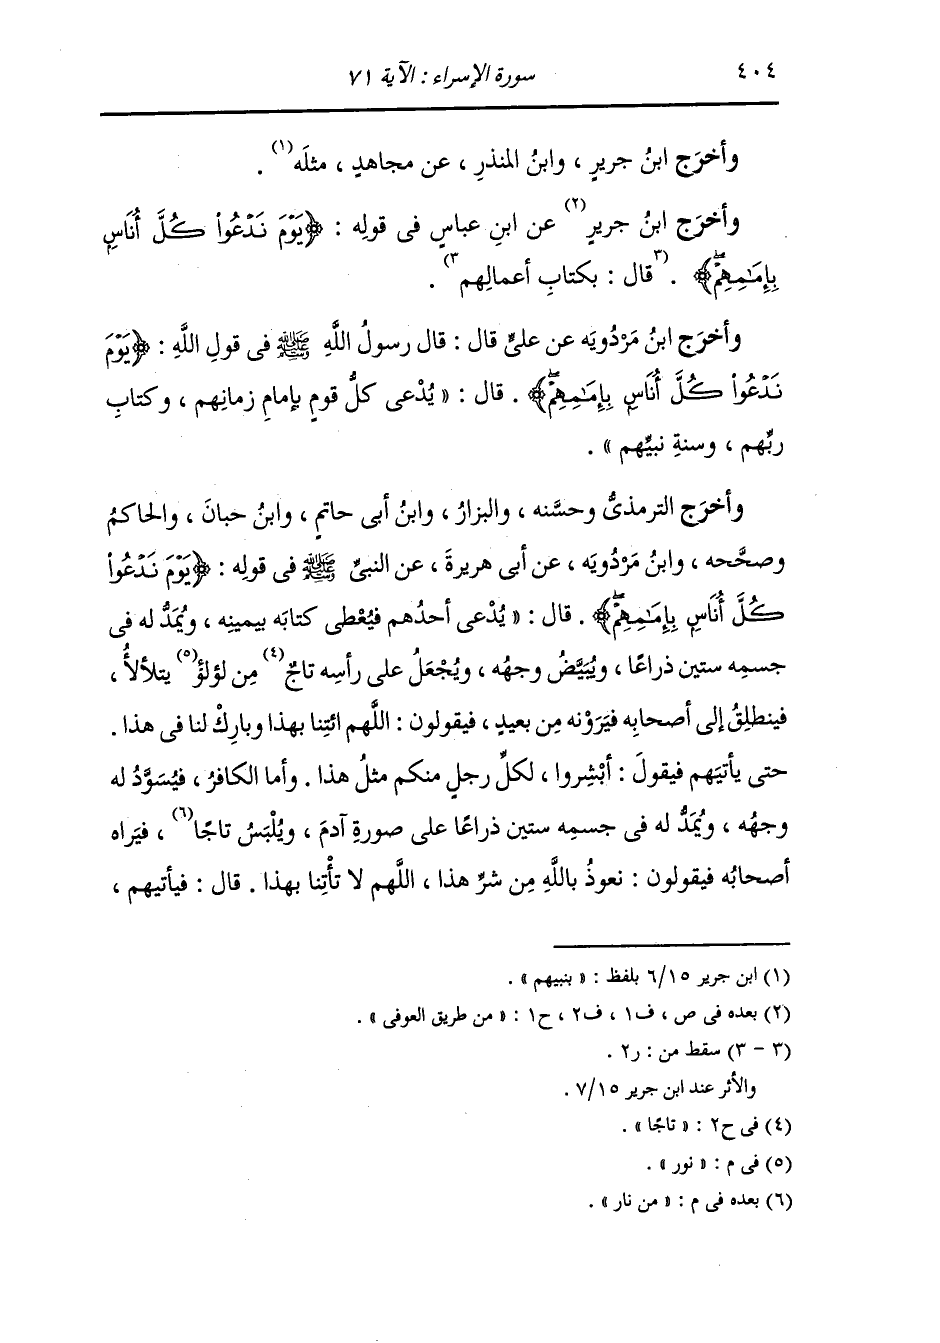 ٤٠٤ سورة الإسراء : الآية ٧١
وأخرَج ابنُ جريرٍ ، وابنُ المنذرِ ، عن مجاهدٍ ، مثلَه(١) .
وأخرَج ابنُ جريرٍ(٢) عن ابنِ عباسٍ فى قولِه : ﴿يَوْمَ نَدْعُوا۟ كُلَّ أُنَاسٍ
بِإِمَـٰمِهِمْۖ﴾ . (٣قال : بكتابِ أعمالِهم٣) .
وأخرَج ابنُ مَرْدُويَه عن علىٍّ قال : قال رسولُ اللَّهِ ﷺ فى قولِ اللَّهِ : ﴿يَوْمَ
نَدْعُوا۟ كُلَّ أُنَاسٍ بِإِمَـٰمِهِمْۖ﴾ . قال : « يُدْعى كلُّ قومٍ بإمامِ زمانِهم ، وكتابِ
ربِّهم ، وسنةِ نبيِّهم » .
وأخرَج الترمذىُّ وحسَّنه ، والبزارُ ، وابنُ أبى حاتمٍ ، وابنُ حبانَ ، والحاكمُ
وصحَّحه ، وابنُ مَرْدُويَه ، عن أبى هريرةَ ، عن النبىِّ ﷺ فى قولِه : ﴿يَوْمَ نَدْعُوا۟
كُلَّ أُنَاسٍ بِإِمَـٰمِهِمْۖ﴾ . قال : « يُدْعى أحدُهم فيُعْطى كتابَه بيمينِه ، ويُمَدُّ له فى
جسمِه ستين ذراعًا ، ويُبَيَّضُ وجهُه ، ويُجْعَلُ على رأسِه تاجٌ(٤) مِن لؤلؤٍ(٥) يتلألأُ ،
فينطلِقُ إلى أصحابِه فيَرَوْنه مِن بعيدٍ ، فيقولون : اللَّهم ائتِنا بهذا وبارِكْ لنا فى هذا .
حتى يأتيَهم فيقولَ : أبْشِروا ، لكلِّ رجلٍ منكم مثلُ هذا . وأما الكافرُ ، فيُسَوَّدُ له
وجهُه ، ويُمَدُّ له فى جسمِه ستين ذراعًا على صورةِ آدمَ ، ويُلْبَسُ تاجًا(٦) ، فيَراه
أصحابُه فيقولون : نعوذُ باللَّهِ مِن شرِّ هذا ، اللَّهم لا تأْتِنا بهذا . قال : فيأتيهم ،
(١) ابن جرير ١٥/ ٦ بلفظ : « بنبيهم » .
(٢) بعده فى ص ، ف١ ، ف٢ ، ح١ : « من طريق العوفى » .
(٣ - ٣) سقط من : ر٢ .
والأثر عند ابن جرير ١٥/ ٧ .
(٤) فى ح٢ : « تاجًا » .
(٥) فى م : « نور » .
(٦) بعده فى م : « من نار » .